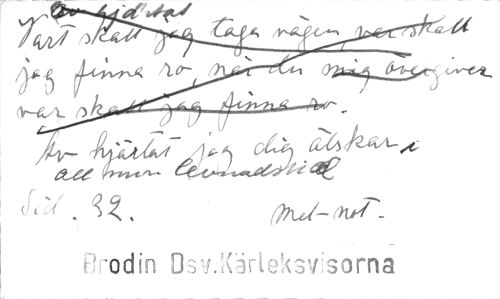 av hjärtat
Vart skall jag taga vägen, var skall
jag finna ro, när du mig övergiver
var skall jag finna ro.
Av hjärtat jag dig älskar i
all min levnadstid
Sid. 32.
Mel-not-
Brodin Dsv.Kärleksvisorna